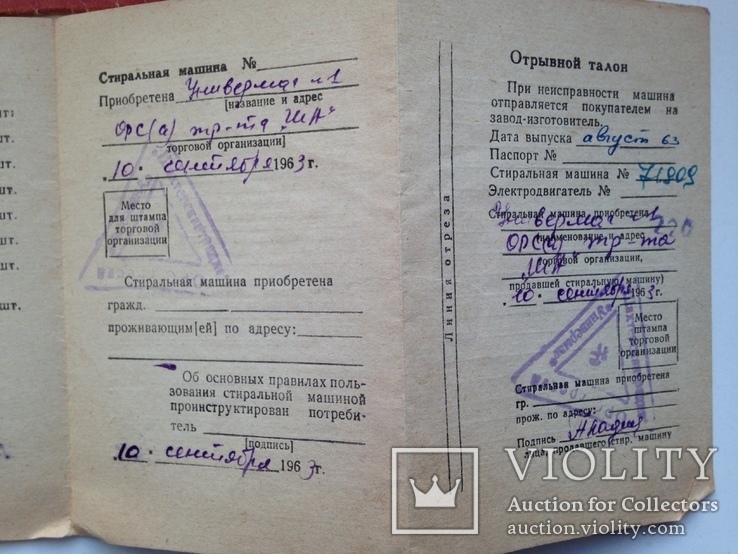 шт.
шт.
шт.
шт.
шт.
шт.
Стиральная машина №
Приобретена Универмаг №1
[название и адрес
ОРС(а) тр-та "ША"
торговой организации]
"10" сентября 1963 г.
Место
для штампа
торговой
организации
Стиральная машина приобретена
гражд.
проживающим[ей] по адресу:
Об основных правилах поль-
зования стиральной машиной
проинструктирован потреби-
тель
[подпись]
"10" сентября 1963 г.
Линия отреза
Отрывной талон
При неисправности машина
отправляется покупателем на
завод-изготовитель.
Дата выпуска август 63
Паспорт №
Стиральная машина № 71809
Электродвигатель №
Стиральная машина приобретена
Универмаг №1
(наименование и адрес
ОРС(а) тр-та
торговой организации,
"ША"
продавшей стиральную машину)
"10" сентября 1963 г.
Место
штампа
торговой
организации
Стиральная машина приобретена
гр.
прож. по адресу:
Подпись
лица, продавшего стир. машину
VIOLITY
Auction for Collectors
auction.violity.com